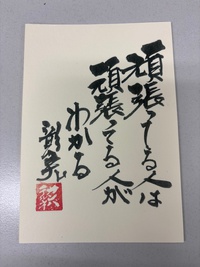 頑張ってる人は
頑張ってる人が
わかる